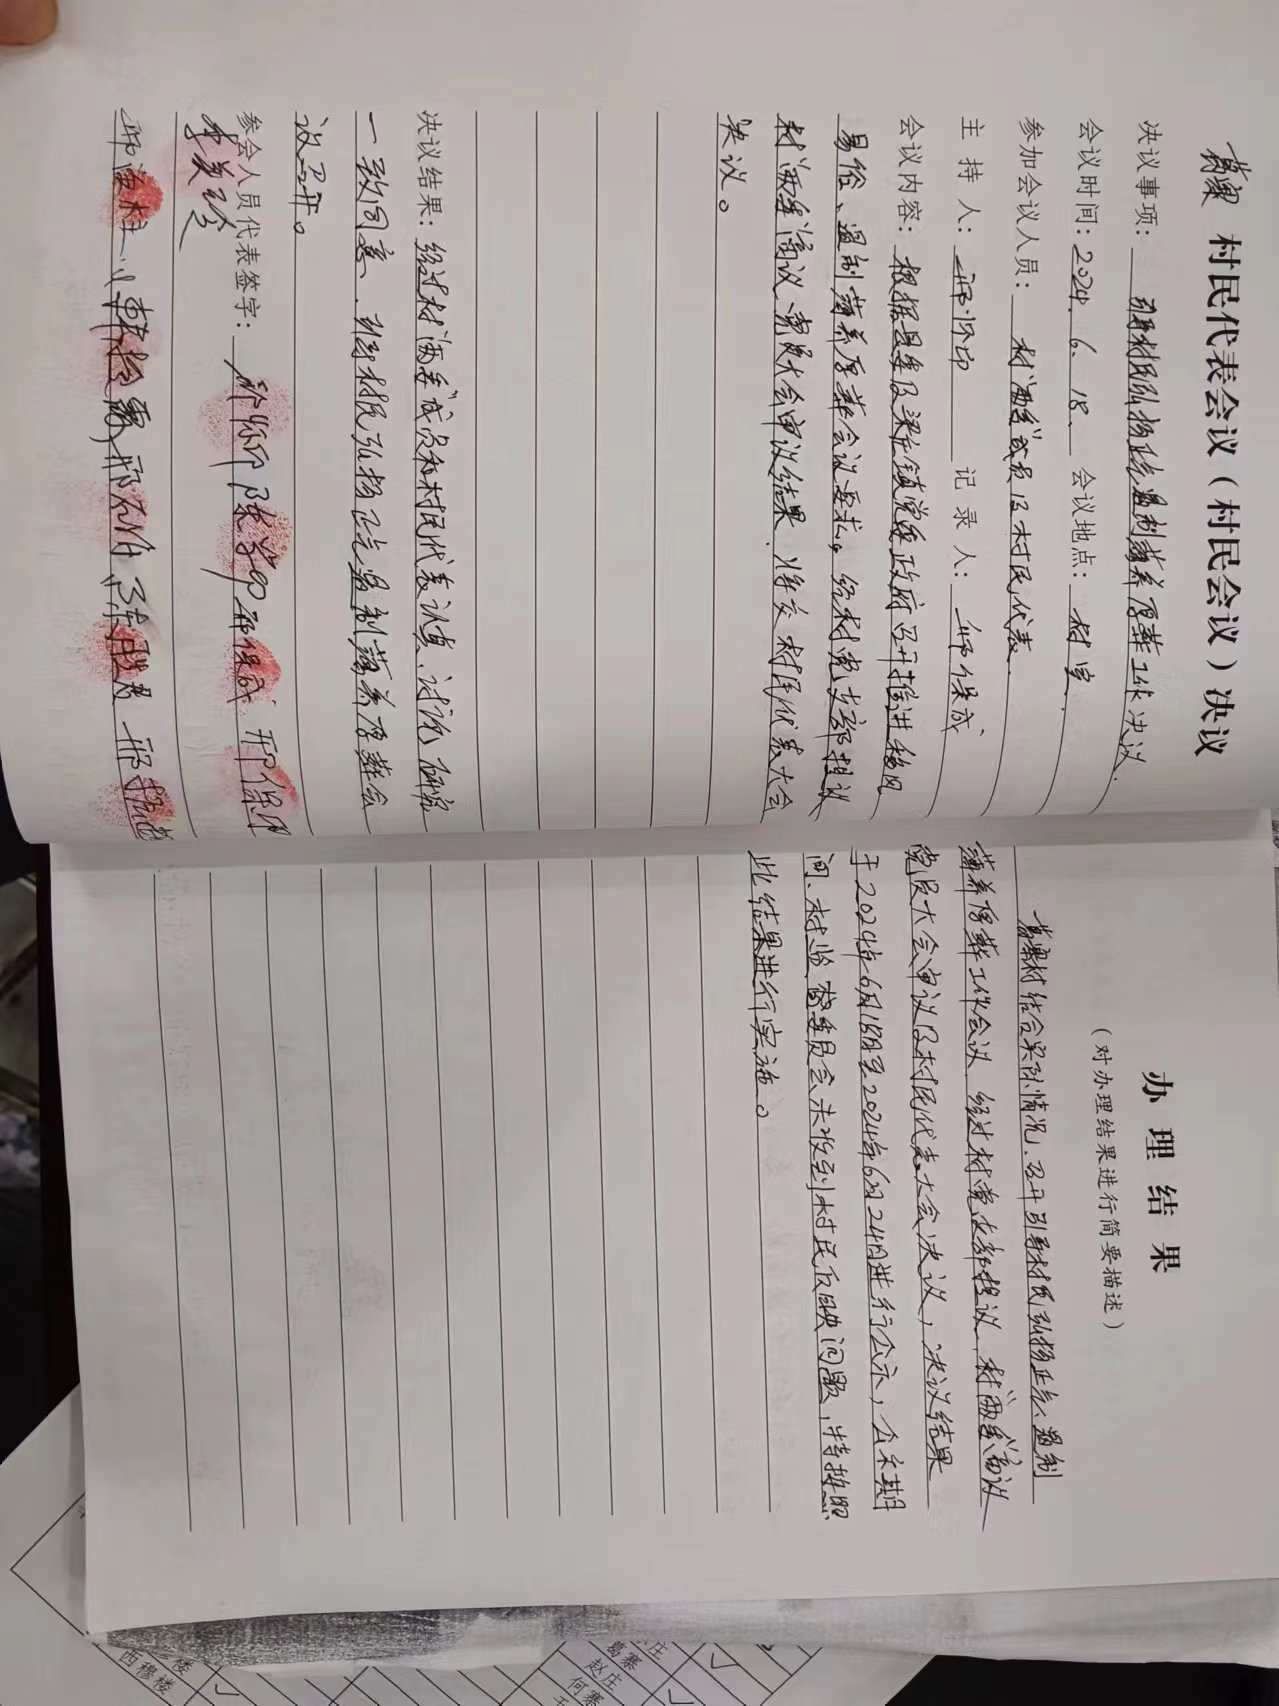 葛寨 村民代表会议（村民会议）决议
决议事项： 引导村民弘扬正气遏制薄养厚葬工作决议.
会议时间：2024.6.18. 会议地点： 村室.
参加会议人员： 村"两委"成员及村民代表.
主持人： 怀印 记录人： 保成
会议内容： 根据县委及梁庄镇党委政府召开推进移风
易俗、遏制薄养厚葬会议要求。经村党支部提议
村"两委"商议.党员大会审议结果.将交村民代表大会
决议。
决议结果：经过村"两委"成员和村民代表认真、讨论.研究
一致同意.引导村民弘扬正气遏制薄养厚葬会
议召开。
参会人员代表签字： 怀印 保成 保
办理结果
（对办理结果进行简要描述）
葛寨村结合实际情况、召开引导村民弘扬正气、遏制
薄养厚葬工作会议 经过村党支部提议，村"两委"商议
党员大会审议及村民代表大会决议，决议结果
于2024年6月18日至2024年6月24日进行公示，公示期
间、村监督委员会未收到村民反映问题，特按照
此结果进行实施。
西穆楼
葛寨
赵庄
何寨